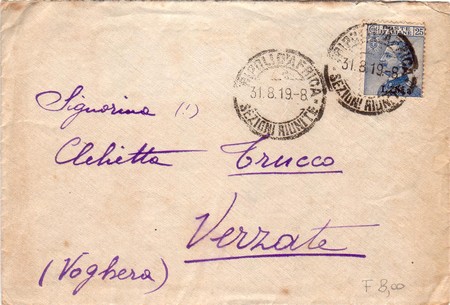 25
TRIPOLI D'AFRICA
31.8.19.-8
SEZIONI RIUNITE
TRIPOLI D'AFRICA
31.8.19.-8
SEZIONI RIUNITE
Signorina (!)
Clelietta Trucco
Verzate
(Voghera)
F 8,00